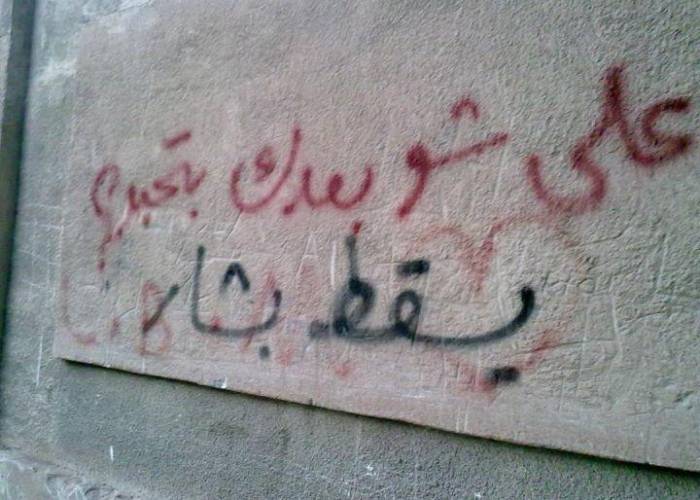 على شو بعدك بتحبيه؟
يقط بشار